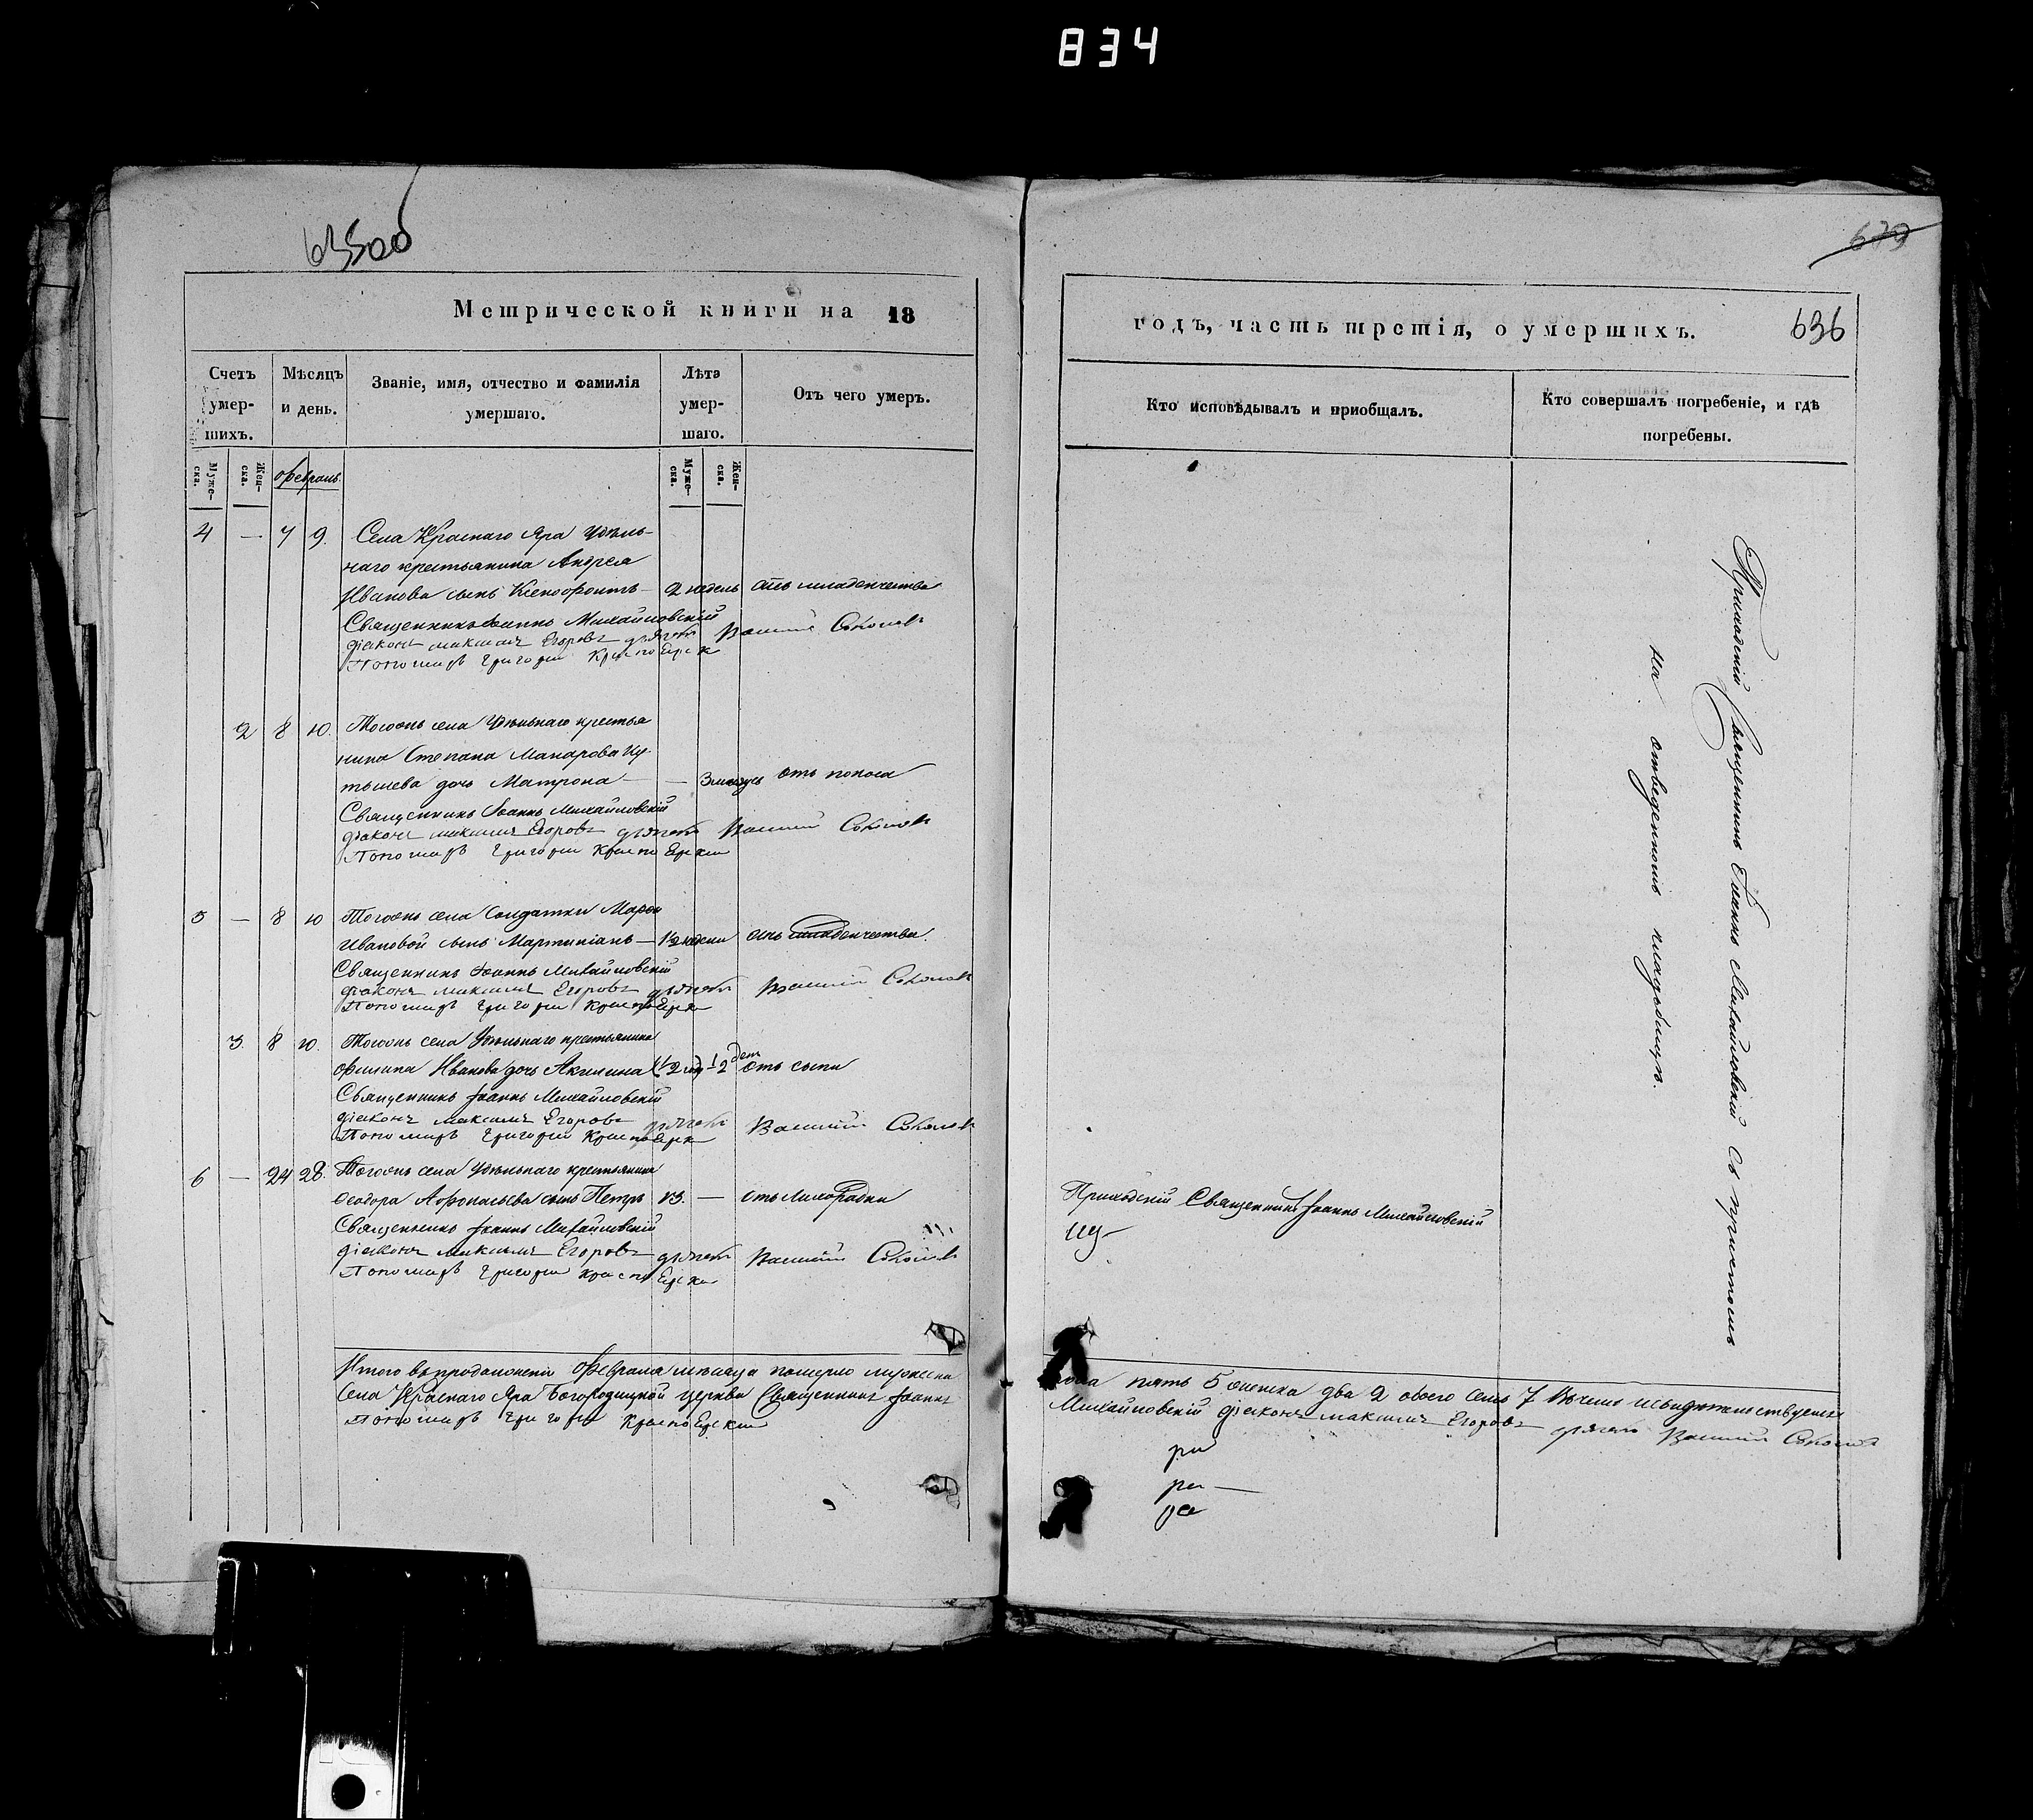 834
635об
Метрической книги на 18
Счетъ умер-шихъ.
Мѣсяцъ и день.
Званіе, имя, отчество и фамилія умершаго.
Лѣта умер-шаго.
Отъ чего умеръ.
Муже-ска.
Жен-ска.
Февраль
Муже-ска.
Жен-ска.
4 — 7 9. Села Краснаго Яра Удѣль-
наго крестьянина Андрея
Иванова сынъ Ксенофонтъ — 2 недель отъ младенчества
Священникъ Іоаннъ Михайловскій
діаконъ Максимъ Егоровъ дьячекъ Василій Соколовъ
Пономарь Григорій Красноярск
2 8 10. Тогожъ села Удѣльнаго крестья
нина Степана Макарова
дочь Матрона — — 3 отъ поноса
Священникъ Іоаннъ Михайловскій
діаконъ Максимъ Егоровъ дьячекъ Василій Соколовъ
Пономарь Григорій
5 — 8 10 Тогожъ села Солдатки Марфы
Ивановой сынъ Мартиніанъ — 1/2 недели отъ младенчества.
Священникъ Іоаннъ Михайловскій
діаконъ Максимъ Егоровъ дьячекъ Василій Соколовъ
Пономарь Григорій
3. 8 10. Тогожъ села Удѣльнаго крестьянина
Филипа Иванова дочь Акилина отъ сыпи
Священникъ Іоаннъ Михайловскій
діаконъ Максимъ Егоровъ дьячекъ Василій Соколовъ
Пономарь Григорій
6 — 24 28. Тогожъ села Удѣльнаго крестьянина
Феодора Афонасьева сынъ Петръ — отъ лихорадки
Священникъ Іоаннъ Михайловскій
діаконъ Максимъ Егоровъ дьячекъ Василій Соколовъ
Пономарь Григорій
Итого въ продолженіи Февраля мѣсяца померло мужеска
Села Краснаго Яра Богородицкой церкви Священникъ Іоаннъ
Пономарь Григорій
679
годъ, часть третія, о умершихъ. 636
Кто исповѣдывалъ и пріобщалъ.
Кто совершалъ погребеніе, и гдѣ погребены.
Приходскій Священникъ Іоаннъ Михайловскій съ причетомъ
на отведенномъ кладбищѣ.
Приходскій Священникъ Іоаннъ Михайловскій
пола пять 5 женска два 2 обоего семь 7 въ чемъ и свидѣтельствуемъ
Михайловскій діаконъ Максимъ Егоровъ дьячекъ Василій Соколовъ